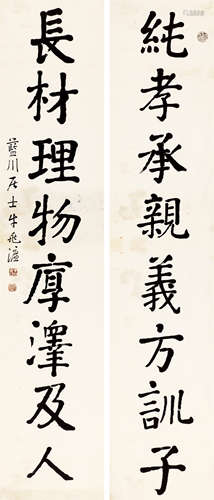 純孝承親義方訓子
長材理物厚澤及人
藍川居士牛兆濂